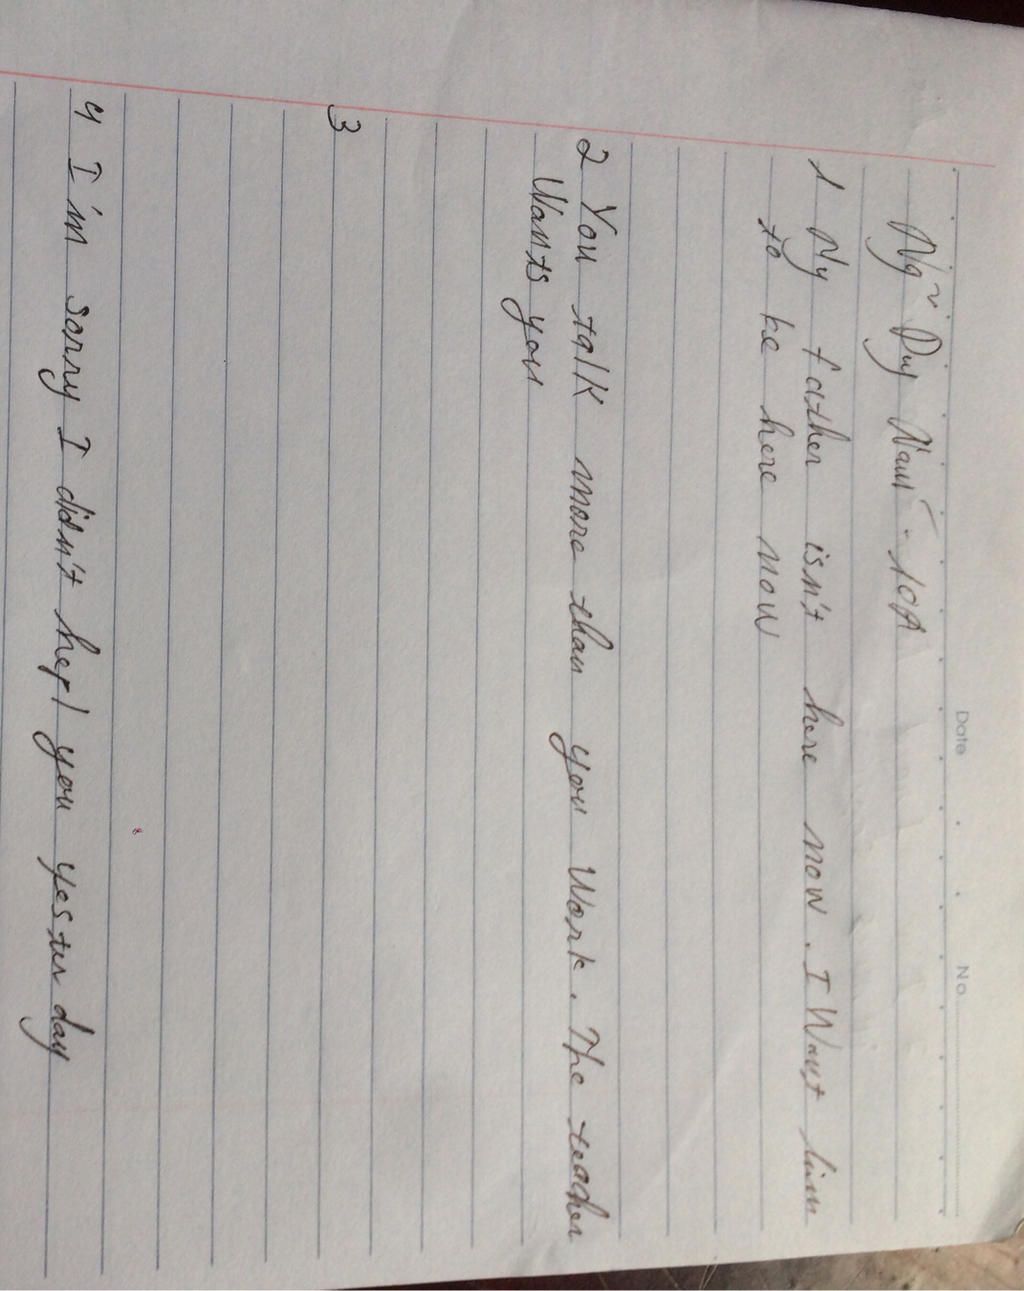 Date No.
Ngṽ Duy Nam - 10A
1 My father isn't here now. I Want him
to be here now
2 You talk more than you Work. The teacher
Wants you
3
4 I'm sorry I didn't hepl you yester day